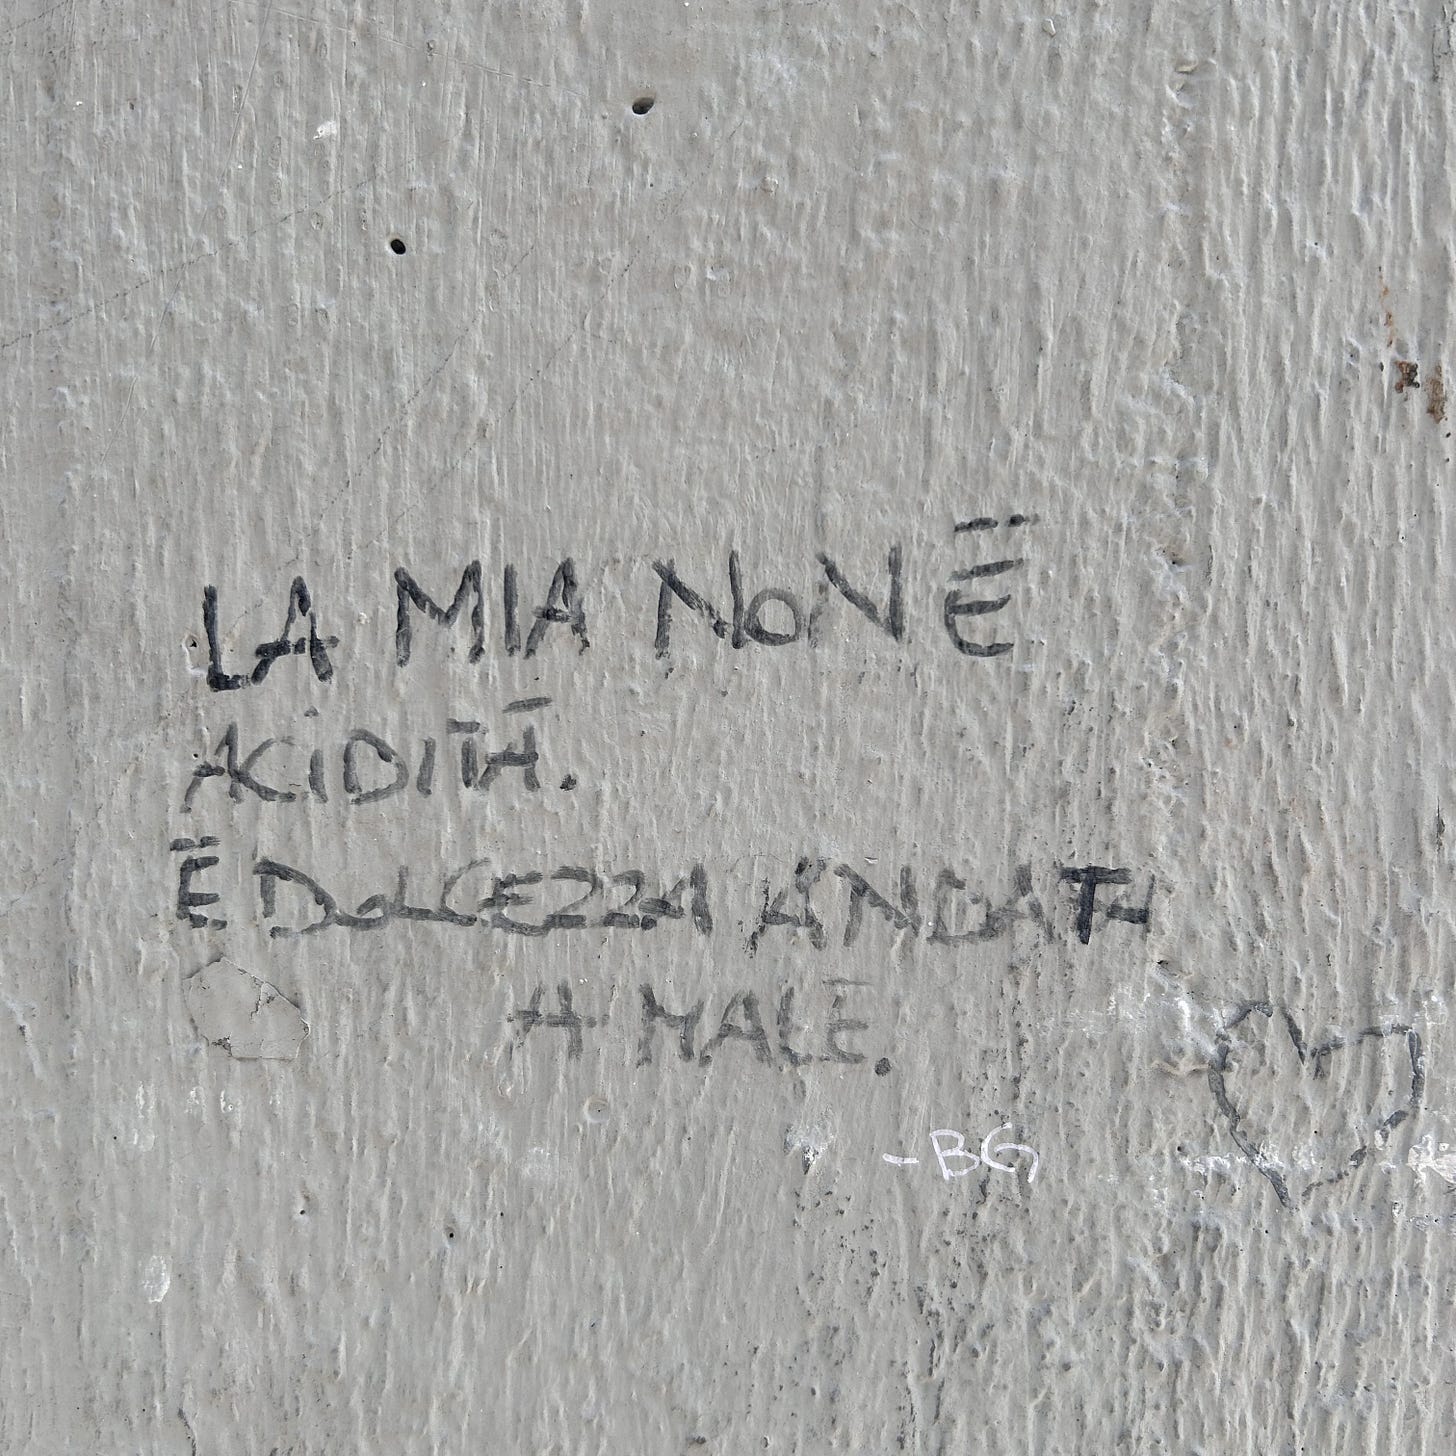 LA MIA NON È
ACIDITÀ.
È DOLCEZZA ANDATA
A MALE.
-BG